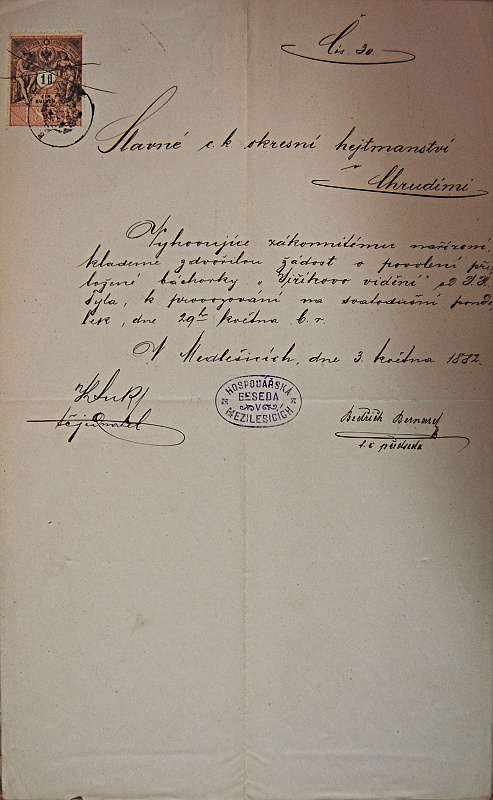 Čís. 30.
Slavné c. k. okresní hejtmanství
v
Chrudimi
Vyhovujíce zákonnitému nařízení,
klademe zdvořilou žádost o povolení při
ložené báchorky „Jiříkovo vidění" od J. K.
Tyla, k provozování na svatodušní ponde
lek, dne 29ho května t. r.
V Medlešicích, dne 3. května 1882.
HOSPODÁŘSKÁ
BESEDA
V
MEZILESICÍCH
jednatel
Bedřich Bernard
t. č. předseda